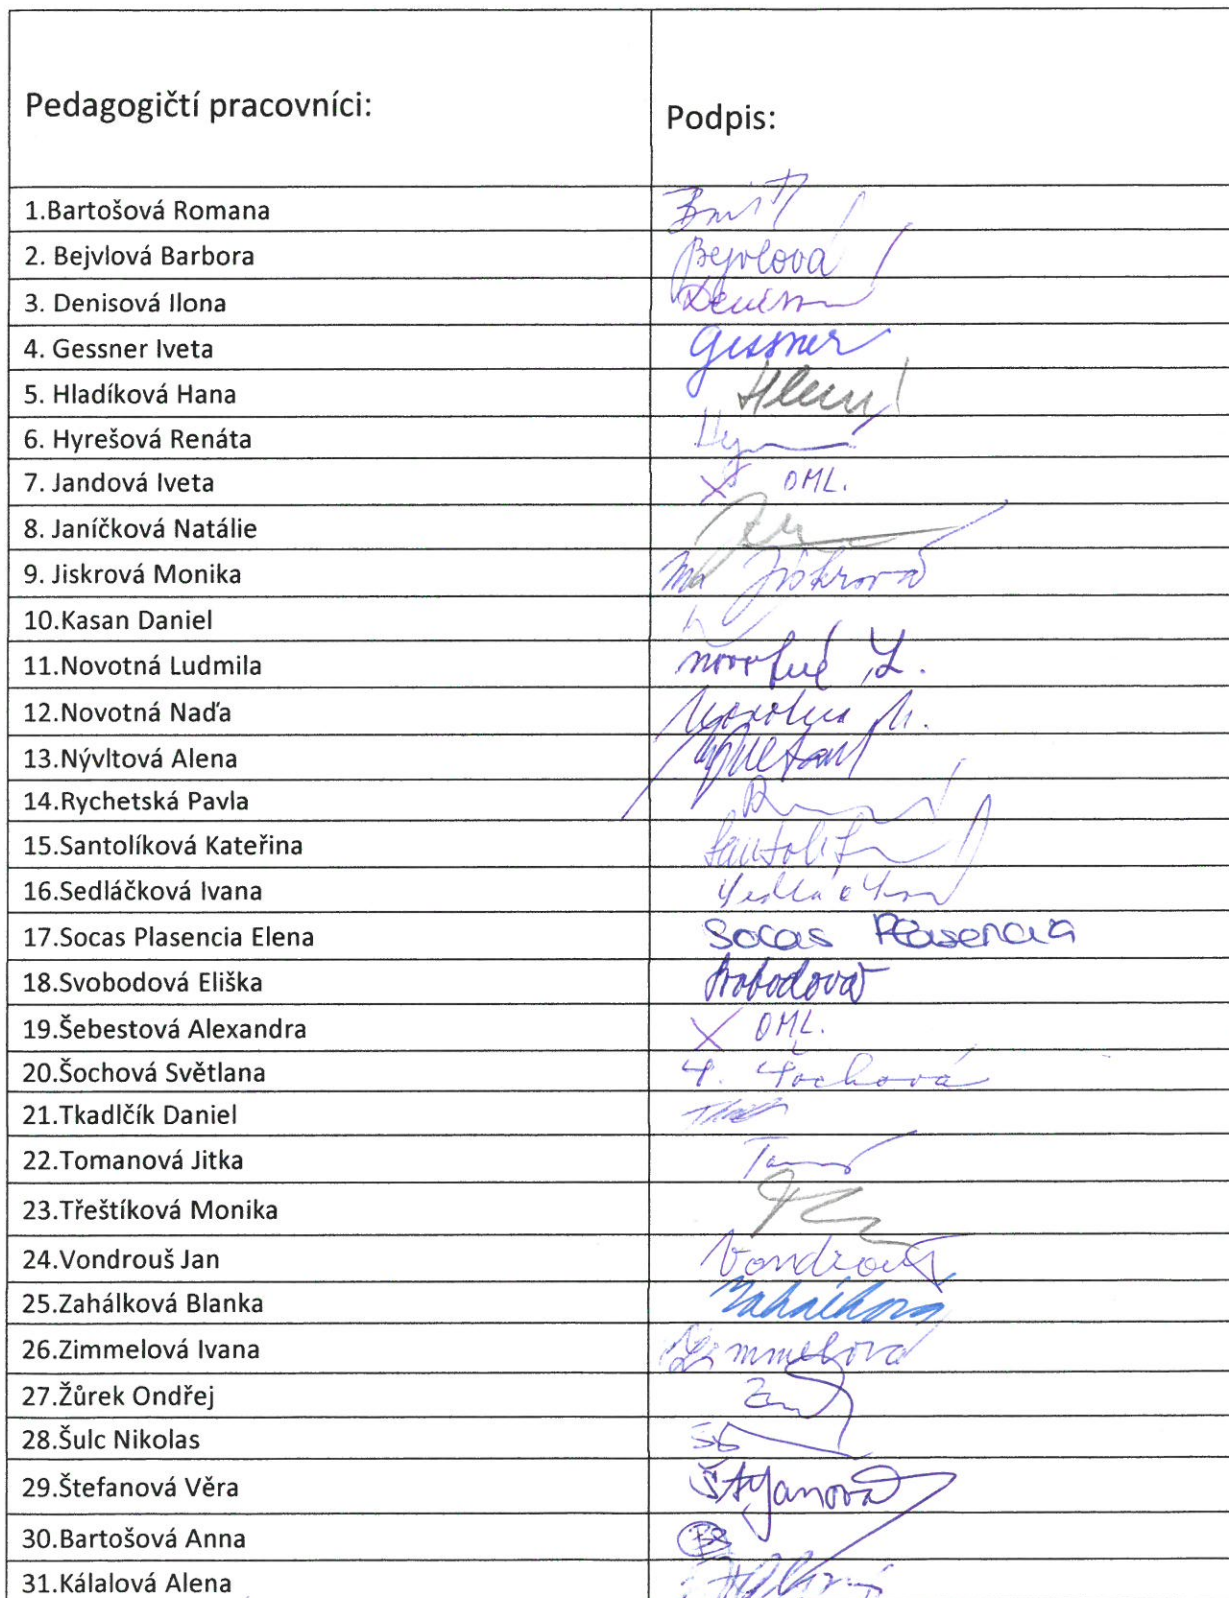 Pedagogičtí pracovníci: Podpis:
1.Bartošová Romana
2. Bejvlová Barbora Bejvlová
3. Denisová Ilona
4. Gessner Iveta Gessner
5. Hladíková Hana
6. Hyrešová Renáta
7. Jandová Iveta X OML.
8. Janíčková Natálie
9. Jiskrová Monika Jiskrová
10.Kasan Daniel
11.Novotná Ludmila Novotná L.
12.Novotná Naďa Novotná N.
13.Nývltová Alena
14.Rychetská Pavla
15.Santolíková Kateřina
16.Sedláčková Ivana
17.Socas Plasencia Elena Socas Plasencia
18.Svobodová Eliška Svobodová
19.Šebestová Alexandra X OML.
20.Šochová Světlana Š. Šochová
21.Tkadlčík Daniel
22.Tomanová Jitka
23.Třeštíková Monika
24.Vondrouš Jan Vondrouš
25.Zahálková Blanka Zahálková
26.Zimmelová Ivana Zimmelová
27.Žůrek Ondřej
28.Šulc Nikolas
29.Štefanová Věra Štefanová
30.Bartošová Anna
31.Kálalová Alena